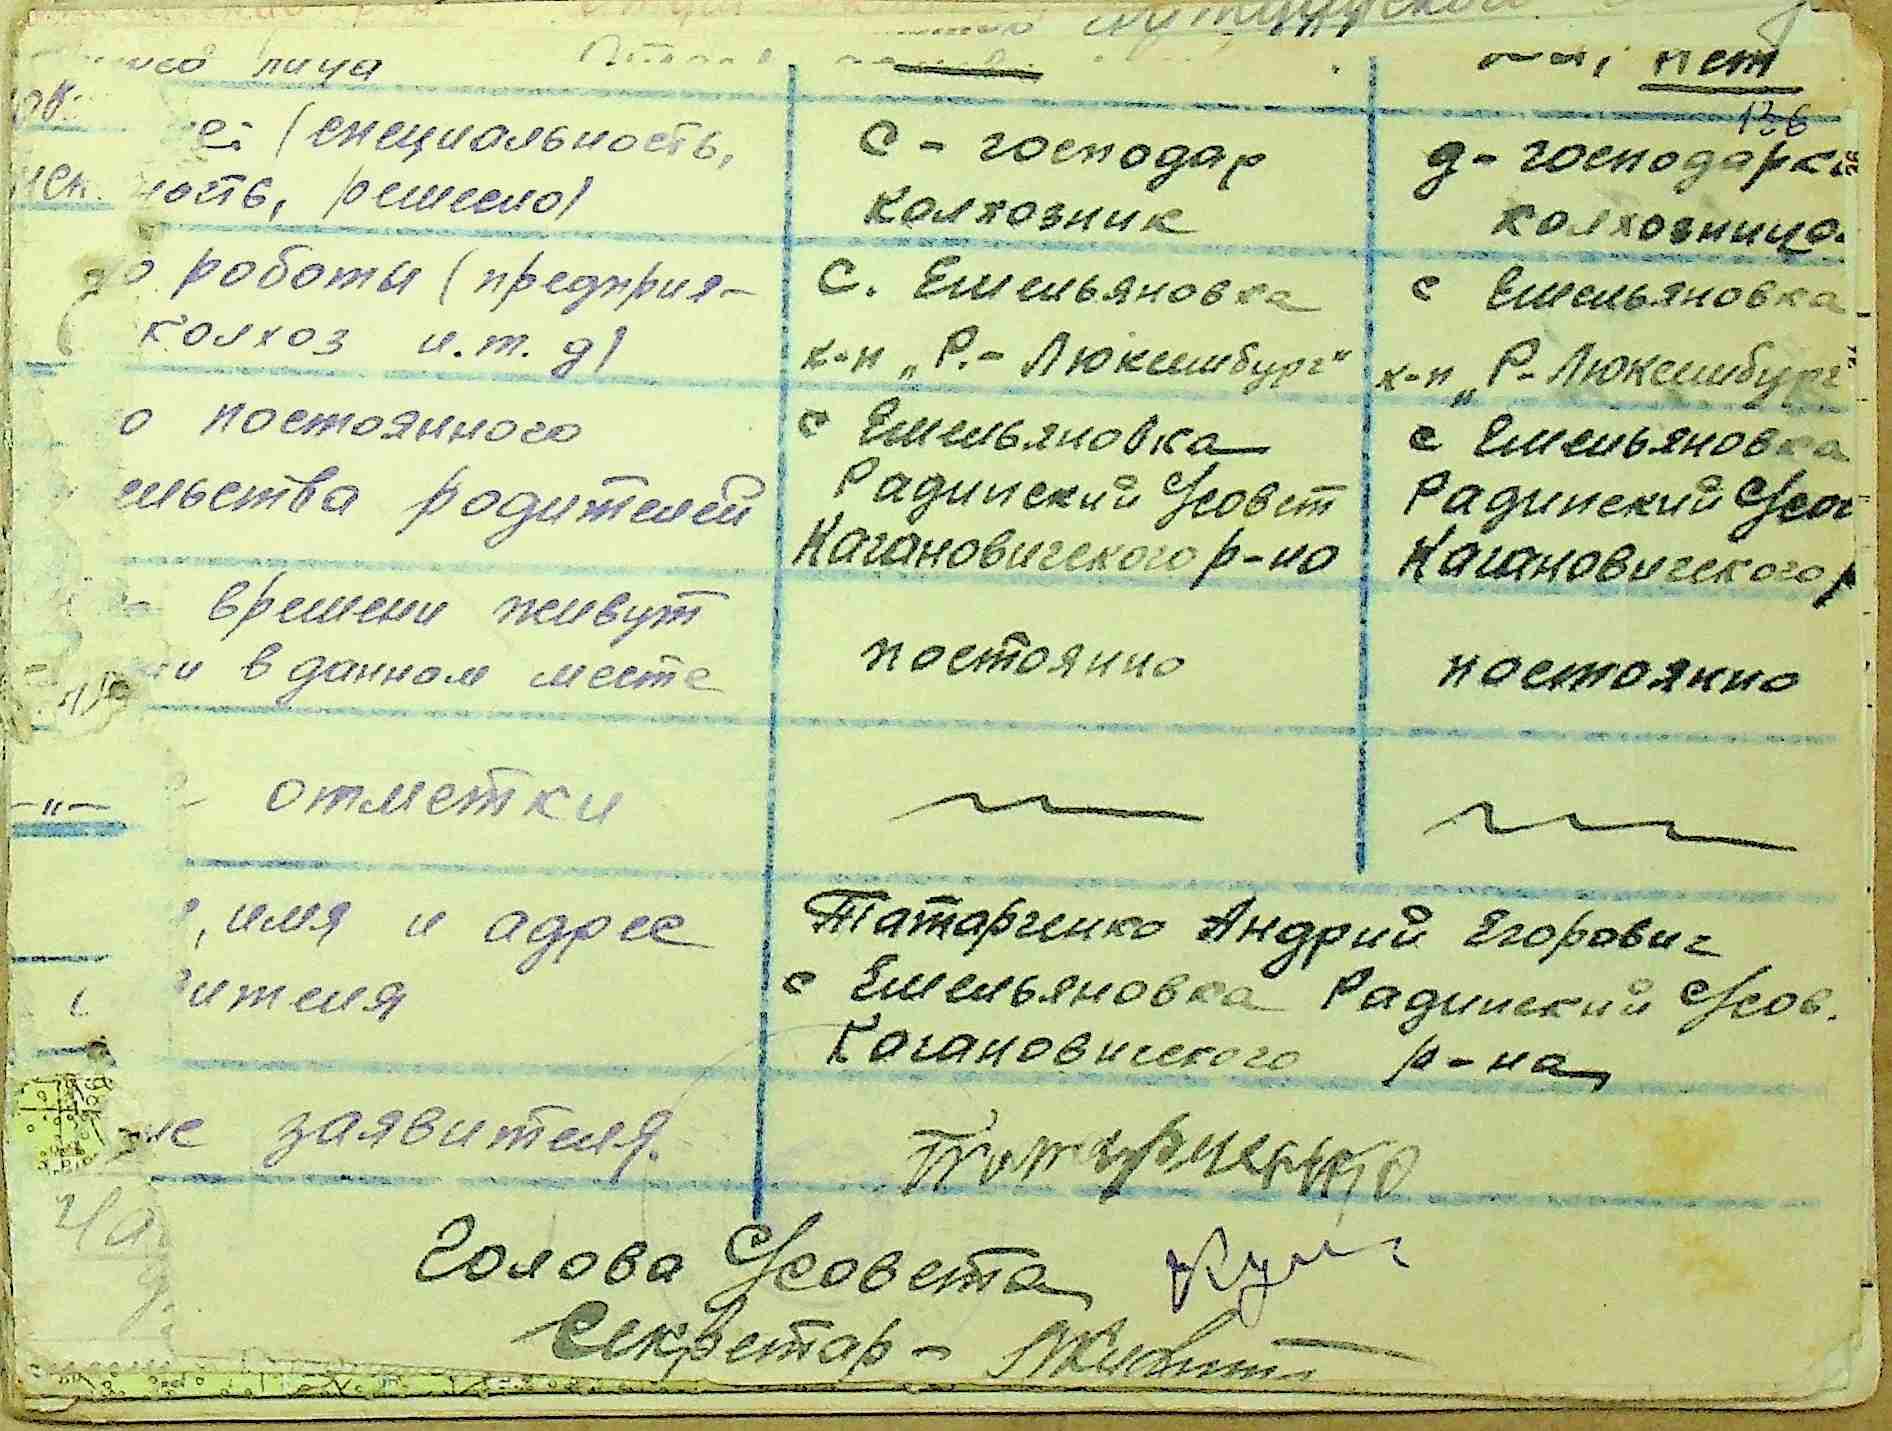 лица
нет
136
е: (специальность,
ность, ремесло)
С - господар
колхозник
д - господарка
колхозница
роботы (предприя-
колхоз и.т.д)
С. Емельяновка
к-п „Р.- Люксембург"
с Емельяновка
к-п „Р-Люксембург"
о постоянного
ельства родителей
с Емельяновка
Радинский С/совет
Кагановичского р-но
с Емельяновка
Радинский С/сов
Кагановичского р
времени живут
в данном месте
постоянно
постоянно
-"-
отметки
, имя и адрес
ителя
Татарченко Андрий Егорович
с Емельяновка Радинский С/сов.
Кагановичского р-на
ис заявителя.
Татарченко
Голова С/совета
Секретар -